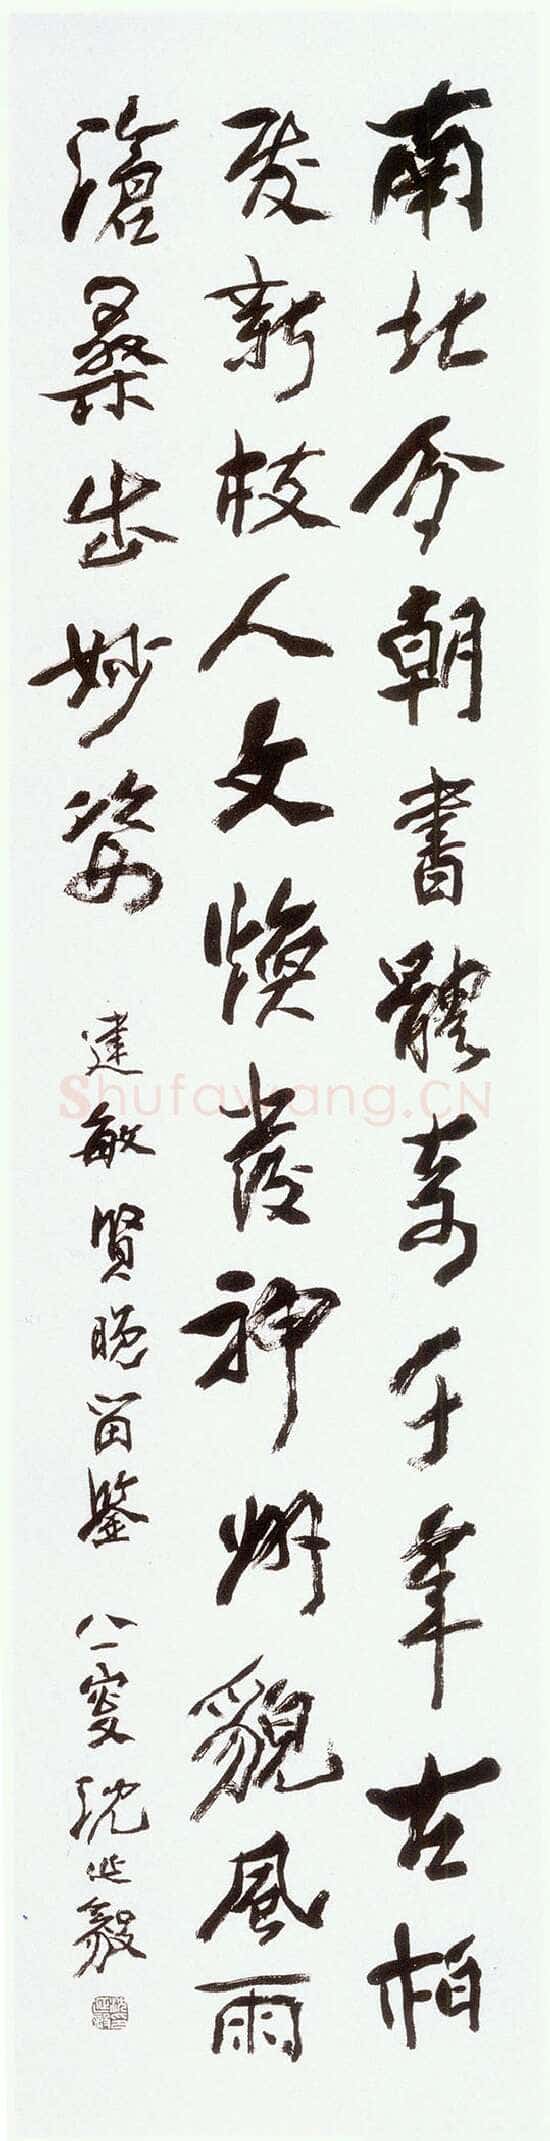 南北今朝書體奇千年古柏
發新枝人文煥發神州貌風雨
滄桑出妙姿
建敏賢晚留鑒 八一叟沈延毅
Shufawang.CN